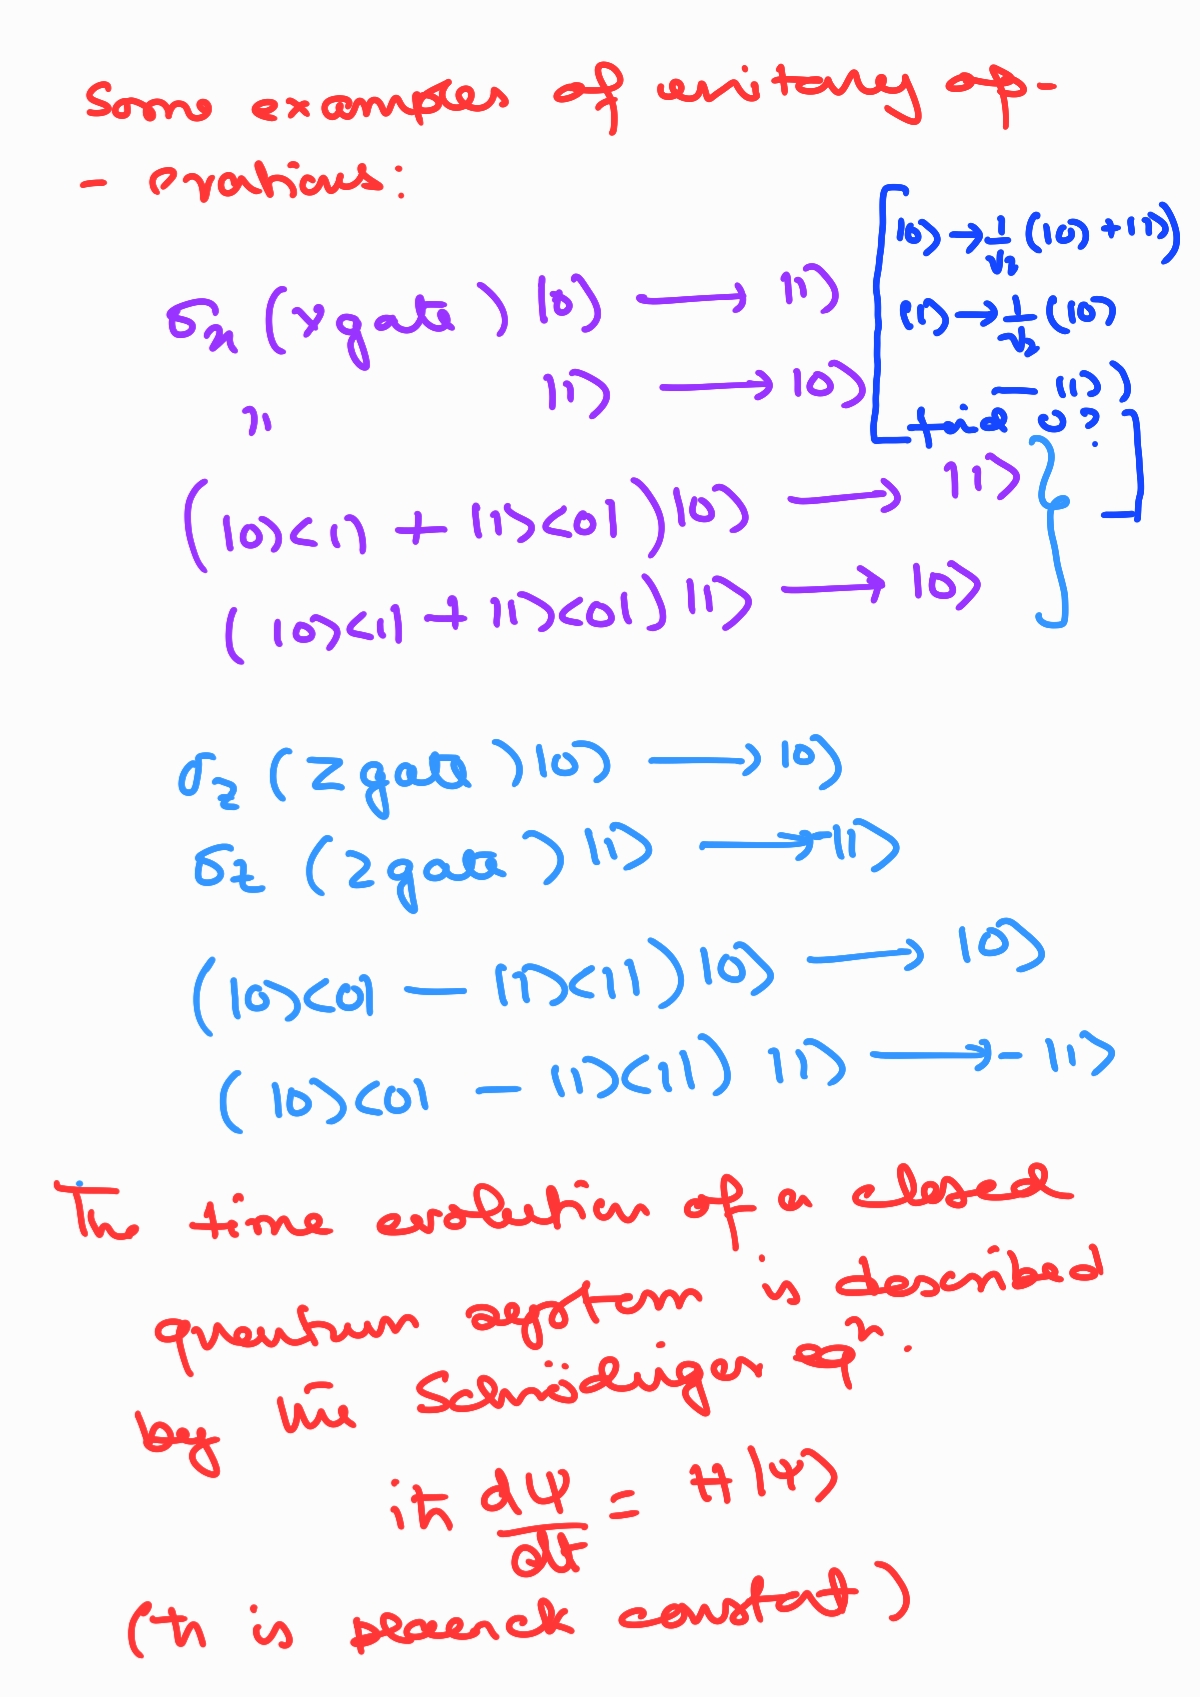 Some examples of unitary op-
- erations:
|0⟩ → 1/√2 (|0⟩ + |1⟩)
|1⟩ → 1/√2 (|0⟩
— |1⟩)
find U?
σx (X gate) |0⟩ ⟶ |1⟩
" |1⟩ ⟶ |0⟩
(|0⟩<1| + |1⟩<0|)|0⟩ ⟶ |1⟩
(|0⟩<1| + |1⟩<0|)|1⟩ ⟶ |0⟩
σz (Z gate)|0⟩ ⟶ |0⟩
σz (Z gate)|1⟩ ⟶ -|1⟩
(|0⟩<0| — |1⟩<1|)|0⟩ ⟶ |0⟩
(|0⟩<0| - |1⟩<1|) |1⟩ ⟶ -|1⟩
The time evolution of a closed
quantum system is described
by the Schrödinger eqⁿ.
iħ dψ/dt = H|ψ⟩
(ħ is planck constant)